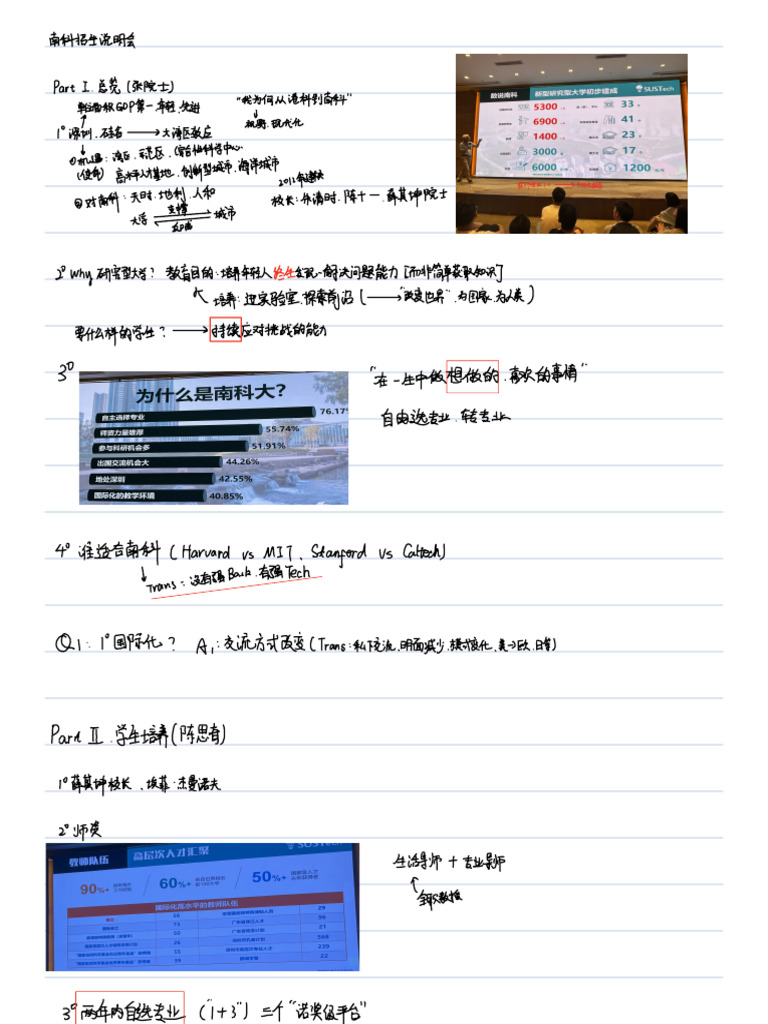 南科招生说明会
Part I. 总览 (张院士)
单位面积GDP第一、年轻、先进
"我为何从港科到南科"
机构、现代化
1° 深圳. 硅谷 → 大湾区效应
①机遇: 湾区、示范区、综合性科学中心..
(使命) 高水平人才基地、创新型城市、海洋城市
②对南科: 天时. 地利. 人和
大学 支撑 城市
2011年建校
校长: 朱清时. 陈十一. 薛其坤院士
数说南科 新型研究型大学初步建成 SUSTech
5300 33
6900 41
1400 23
3000 17
6000 1200
2° Why 研究型大学? 教育目的: 培养年轻人终生发现、解决问题能力 [而非简单获取知识]
培养: 进实验室、探索前沿 (→ "改变世界", 为国家, 为人类)
要什么样的学生? → 持续应对挑战的能力
3°
为什么是南科大?
自主选择专业 76.17%
师资力量雄厚 55.74%
参与科研机会多 51.91%
出国交流机会大 44.26%
地处深圳 42.55%
国际化的教学环境 40.85%
"在一生中做想做的、喜欢的事情"
自由选专业、转专业
4° 谁适合南科 (Harvard vs MIT、Stanford vs Caltech)
Trans: 没有强Back. 有强Tech
Q1: 1° 国际化? A1: 交流方式改变 (Trans: 私下交流, 明面减少, 模式变化, 美→欧、日等)
Part II. 学生培养 (陈思奇)
1° 薛其坤校长、埃菲·杰曼诺夫
2° 师资
教师队伍 高层次人才汇聚 SUSTech
90%+ 60%+ 50%+
国际化高水平的教师队伍
生活导师 + 专业导师
全球教授
3° 两年内自选专业 ("1+3") 三个"诺奖级平台"